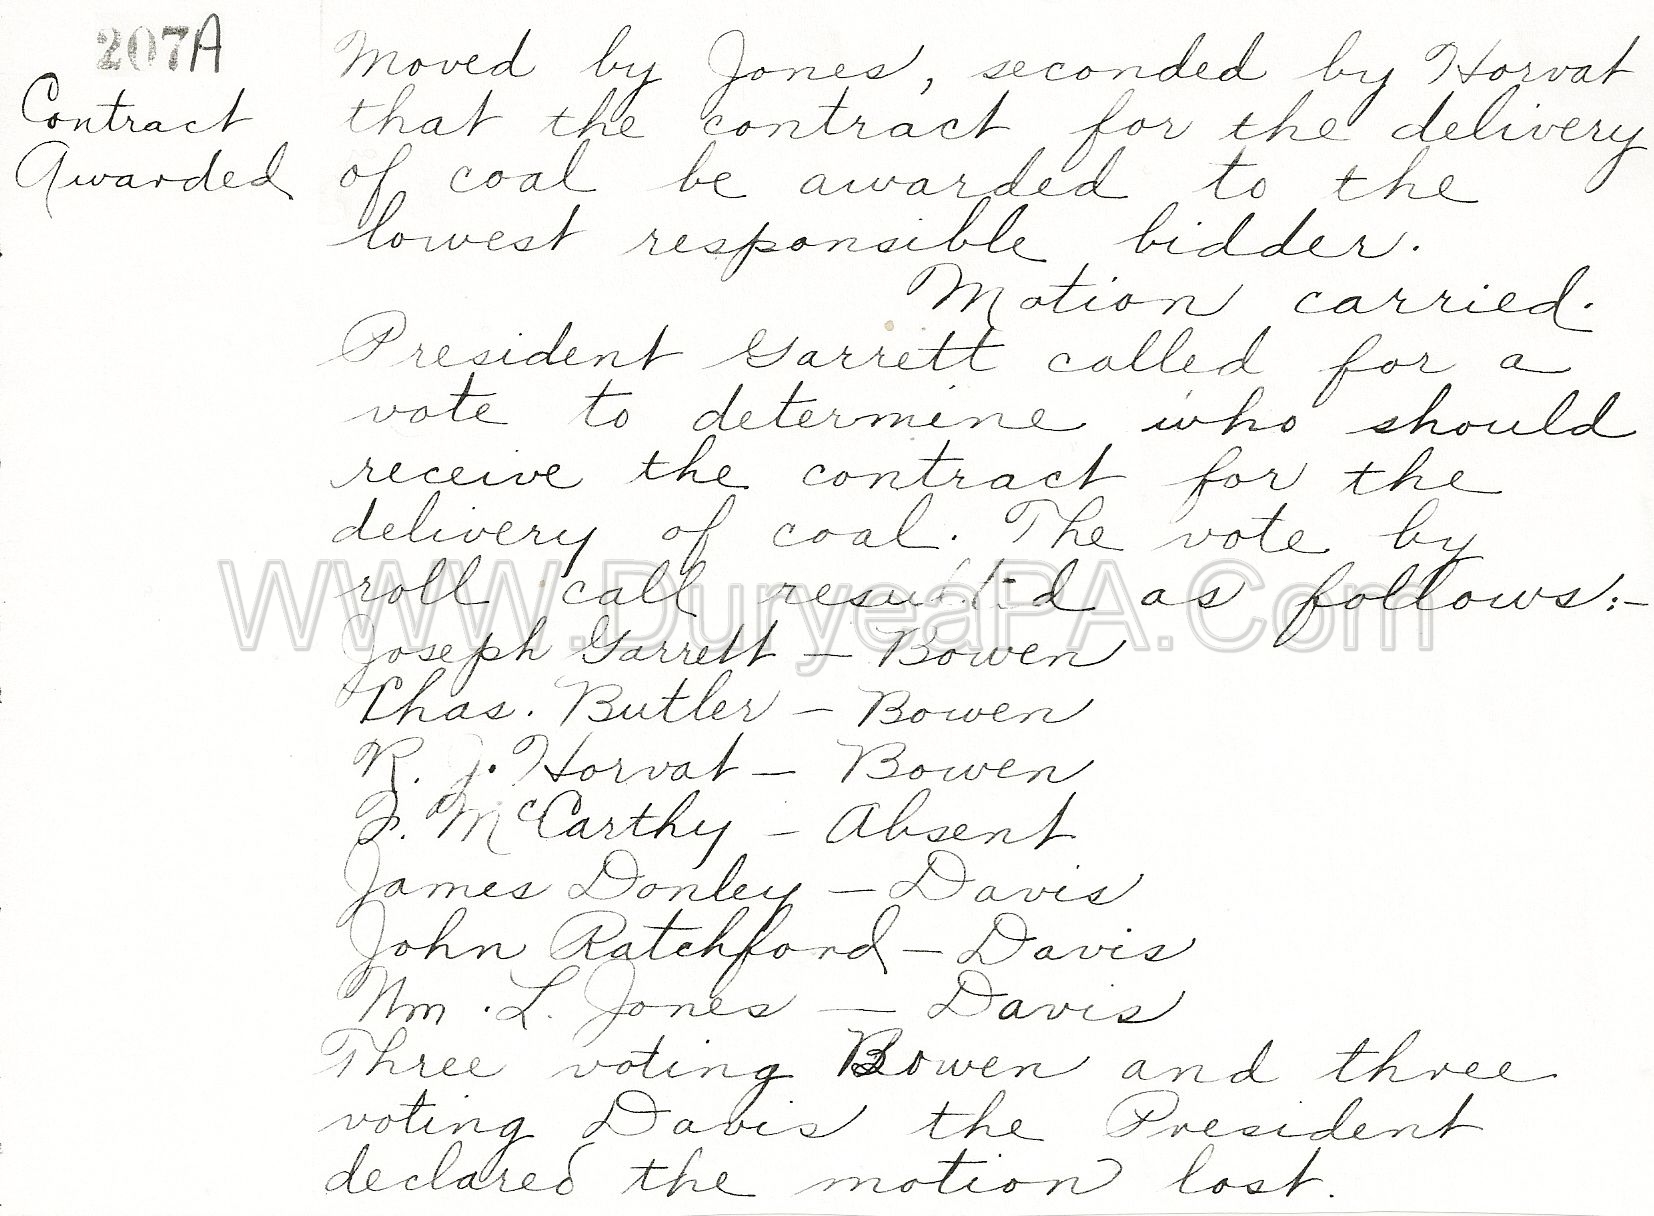 207A
Contract
Awarded
Moved by Jones, seconded by Horvat
that the contract for the delivery
of coal be awarded to the
lowest responsible bidder.
Motion carried.
President Garrett called for a
vote to determine who should
receive the contract for the
delivery of coal. The vote by
roll call resulted as follows:-
WWW.DuryeaPA.Com
Joseph Garrett - Bowen
Chas. Butler - Bowen
R. J. Horvat - Bowen
F. McCarthy - Absent
James Donley - Davis
John Ratchford - Davis
Wm. L. Jones - Davis
Three voting Bowen and three
voting Davis the President
declared the motion lost.